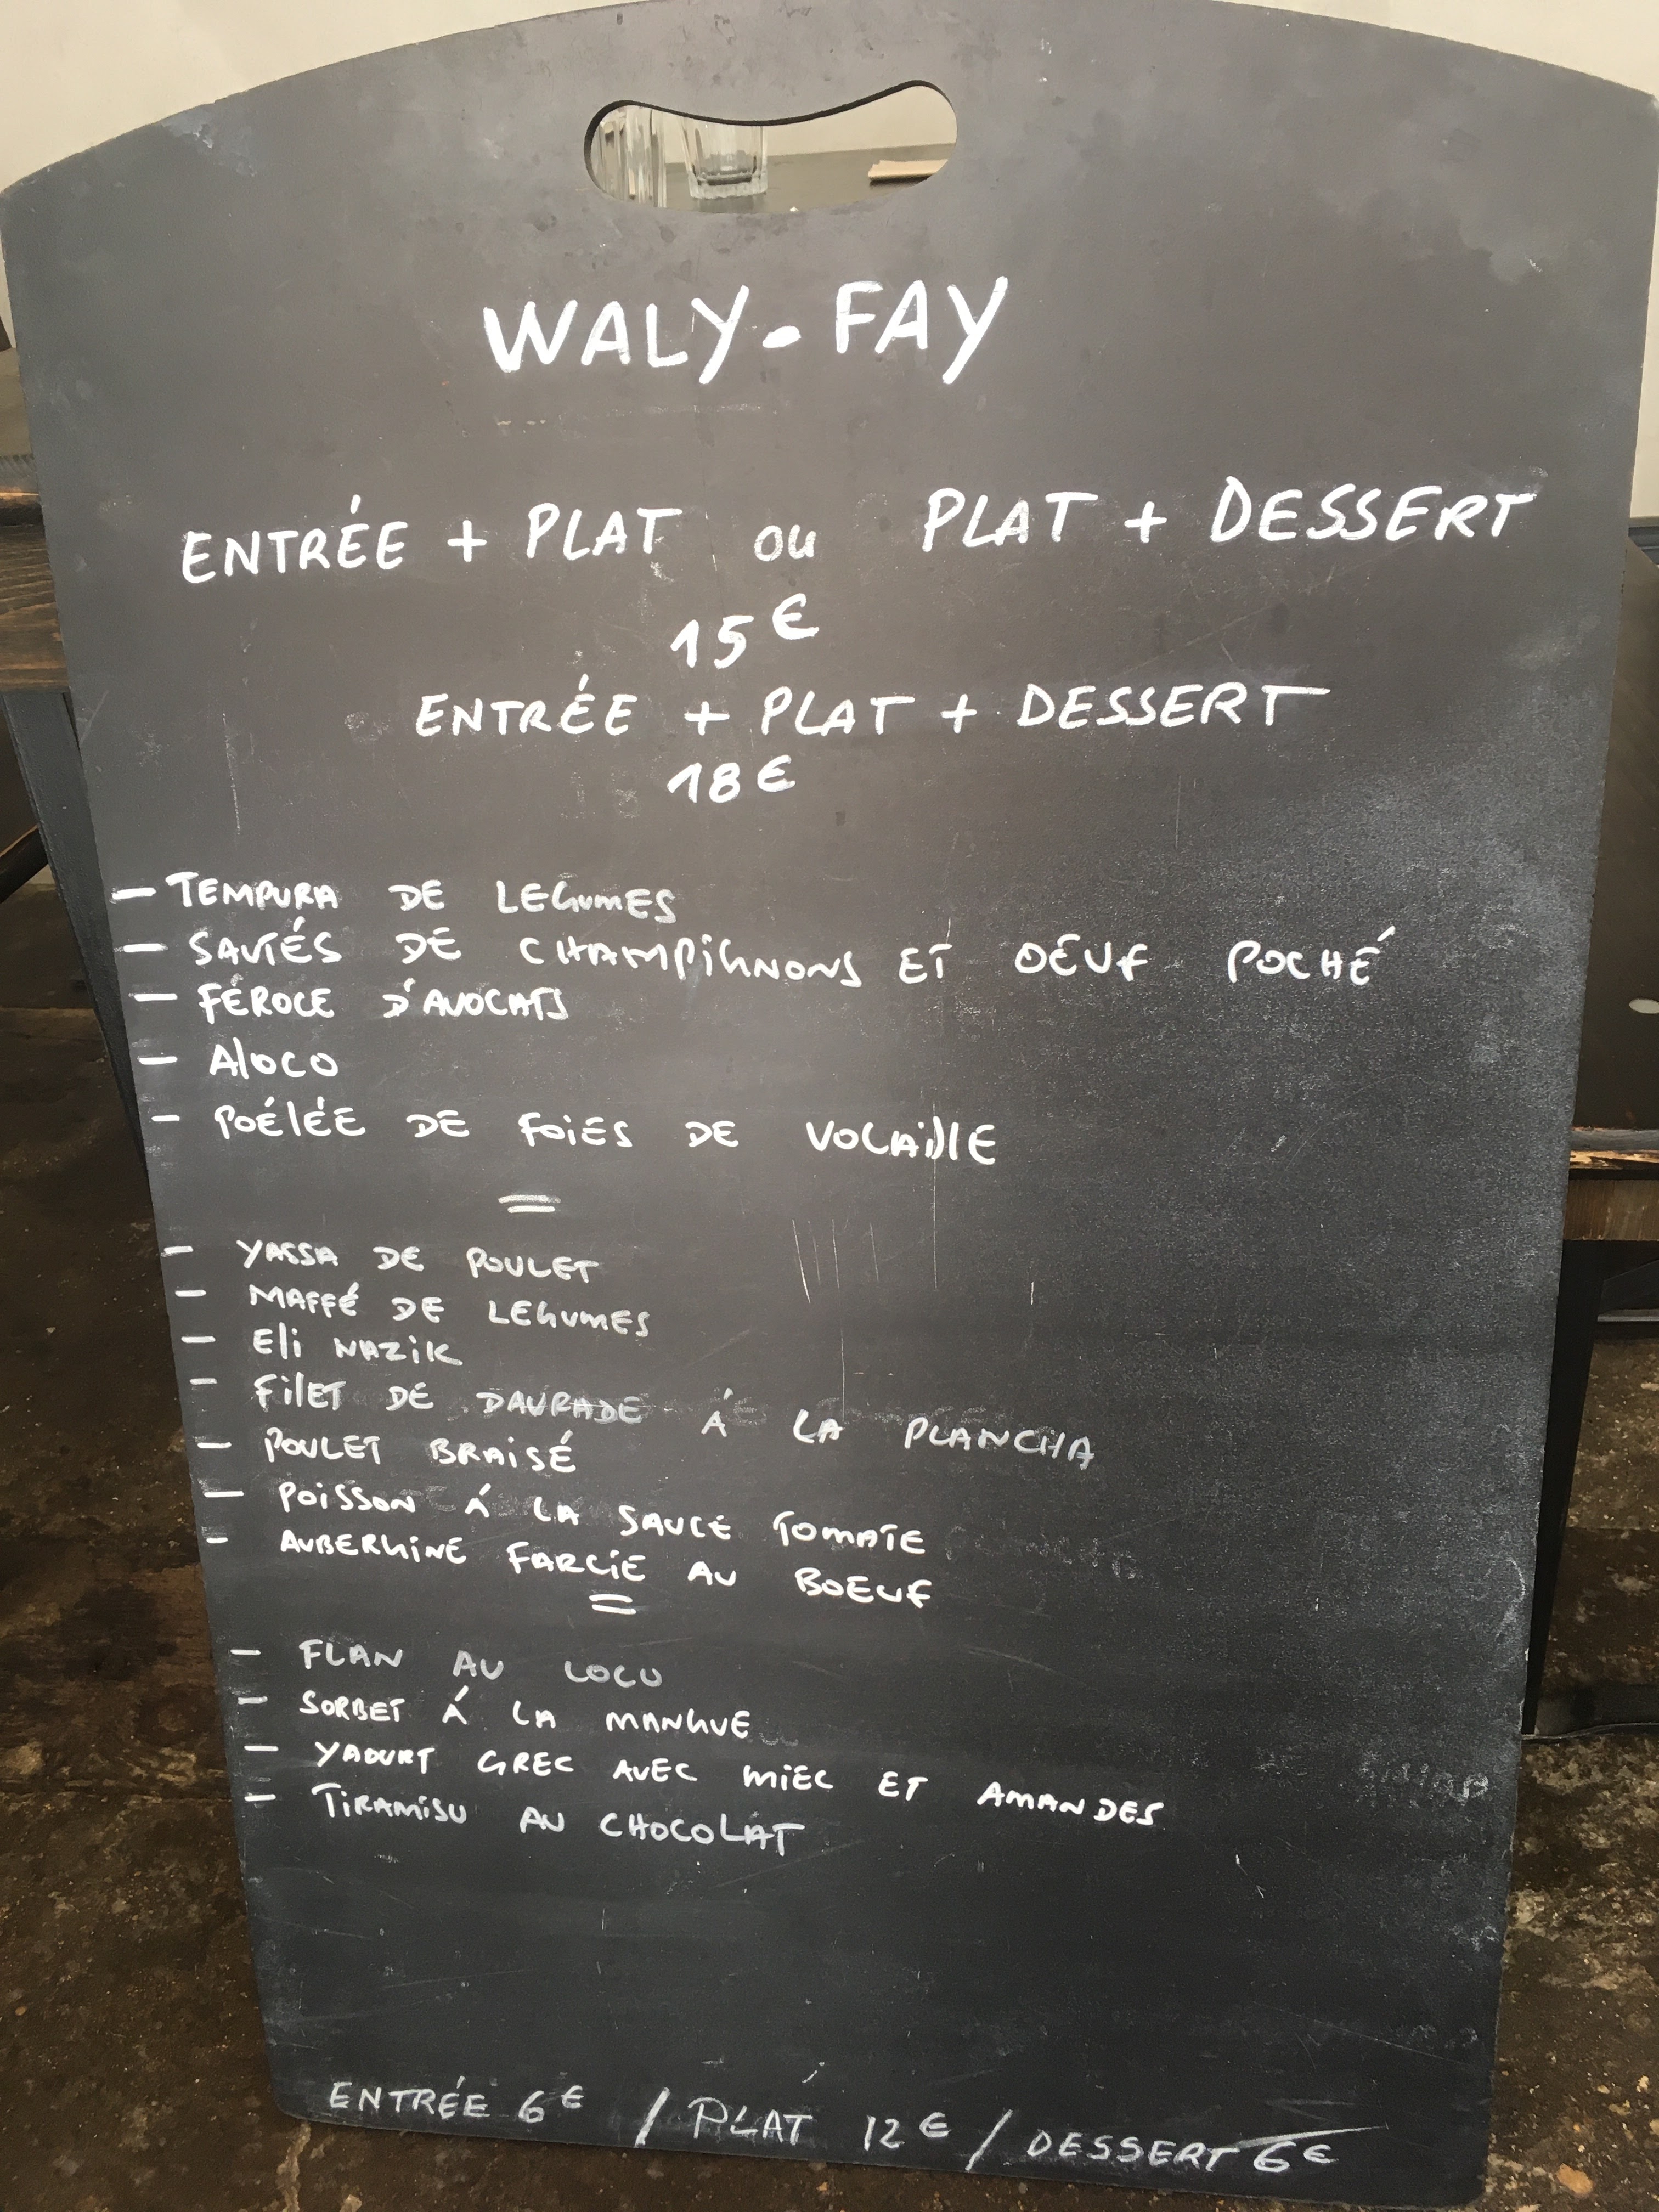 WALY-FAY
ENTRÉE + PLAT ou PLAT + DESSERT
15€
ENTRÉE + PLAT + DESSERT
18€
- TEMPURA DE LEGUMES
- SAUTÉS DE CHAMPIGNONS ET OEUF POCHÉ
- FÉROCE D'AVOCATS
- Aloco
- POÉLÉE DE FOIES DE VOLAILLE
=
- YASSA DE POULET
- MAFFÉ DE LEGUMES
- Eli NAZIK
- FILET DE DAURADE Á LA PLANCHA
- POULET BRAISÉ
- POISSON Á LA SAUCE TOMATE
- AUBERGINE FARCIE AU BOEUF
=
- FLAN AU COCO
- SORBET Á LA MANGUE
- YAOURT GREC AVEC MIEL ET AMANDES
- TIRAMISU AU CHOCOLAT
ENTRÉE 6€ / PLAT 12€ / DESSERT 6€